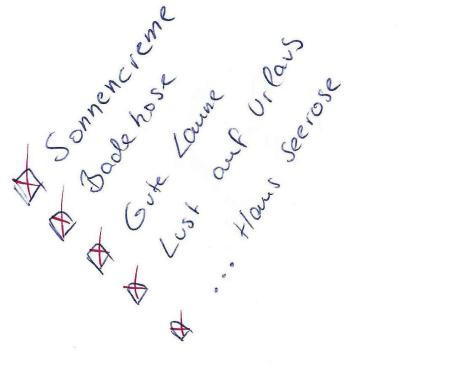 Sonnencreme
Badehose
Gute Laune
Lust auf Urlaub
... Haus Seerose